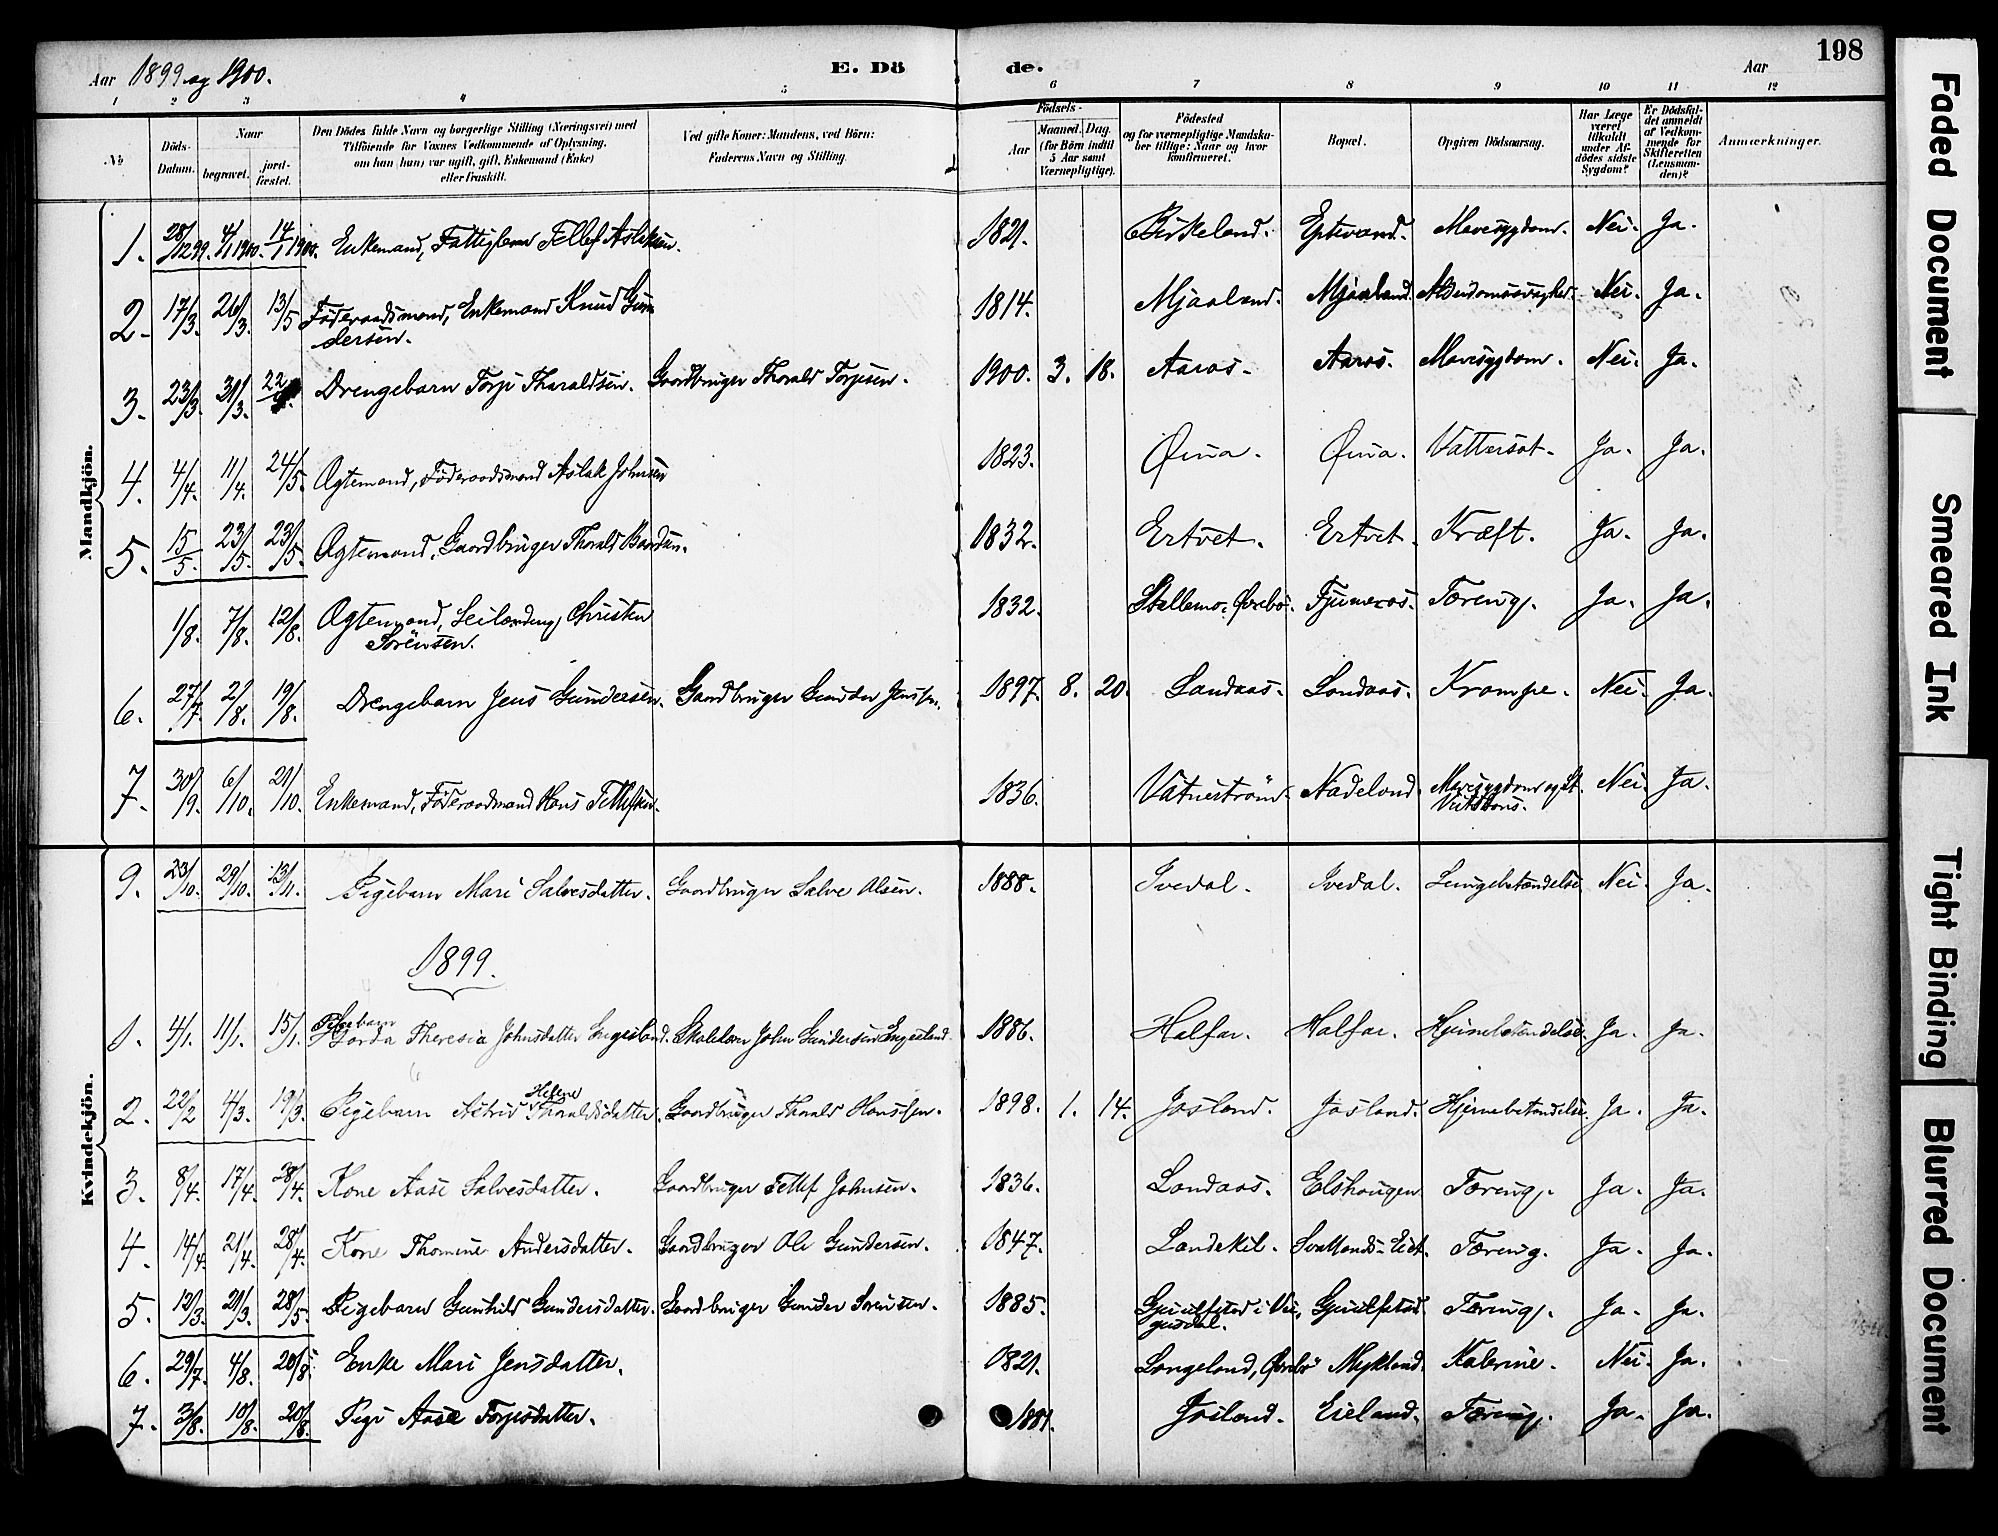 198
Aar 1899 og 1900.
E. Döde.
Aar
1 2 3 4 5 6 7 8 9 10 11 12
No
Döds-Datum.
Naar
begravet.
jord-fæstet.
Den Dödes fulde Navn og borgerlige Stilling (Næringsvei) med
Tilföiende for Voxnes Vedkommende af Oplysning,
om han (hun) var ugift, gift, Enkemand (Enke)
eller fraskilt.
Ved gifte Koner: Mandens, ved Börn:
Faderens Navn og Stilling
Födsels-
Aar
Maaned. Dag.
(for Börn indtil
5 Aar samt
Værnepligtige).
Födested
og for værnepligtige Mandska-
ber tillige: Naar og hvor
konfirmeret.
Bopæl.
Opgiven Dödsaarsag.
Har Læge
været
tilkaldt
under Af-
dödes sidste
Sygdom?
Er Dödsfal-
det anmeldt
af Vedkom-
mende for
Skifteretten
(Lensman-
den)?
Anmærkninger.
Mandkjön.
1. 28/12 99. 4/1 1900. 14/1 1900. Enkemand, Fattiglem Tellef Aslaksen. 1821. Birkeland. Eptevand. Mavesygdom. Nei. Ja.
2. 17/3. 26/3. 13/5 Föderaadsmand, Enkemand Knud Gun
dersen. 1814. Mjaaland. Mjaaland. Alderdomssvaghed. Nei. Ja.
3. 23/3. 31/3. 22 Drengebarn Torje Tharaldsen. Gaardbruger Thorald Torjesen. 1900. 3. 18. Aaros. Aaros. Mavesygdom. Nei. Ja.
4. 4/4. 11/4. 24/5. Ægtemand, Föderaadsmand Aslak Johnsen 1823. Øina. Øina. Vattersot. Ja. Ja.
5. 15/5. 23/5. 23/5. Ægtemand, Gaardbruger Thorald Baardsen. 1832. Ertvet. Ertvet. Kræft. Ja. Ja.
1/8. 7/8. 12/8. Ægtemand, Leilænding Christen
Sörensen. 1832. Stallemo, Øvrebö. Tjomeraas. Tæring. Ja. Ja.
6. 27/7. 2/8. 19/8. Drengebarn Jens Gundersen. Gaardbruger Gunder Jenssen. 1897. 8. 20. Landaas. Landaas. Krampe. Nei. Ja.
7. 30/9. 6/10. 21/10. Enkemand, Föderaadmand Hans Tellefsen. 1836. Vatneström. Nadeland. Mavesygdom og St.
Veitsdans. Nei. Ja.
9. 23/10. 29/10. 13/11. Pigebarn Mari Salvesdatter. Gaardbruger Salve Olsen. 1888. Ivedal. Ivedal. Lungebetændelse Nei. Ja.
1899.
Kvindekjön.
1. 4/1. 11/1. 15/1. Pigebarn
Gjorda Theresia Johnsdatter Engesland. Skolelærer John Gundersen Engesland 1886. Halfar. Halfar. Hjernebetændelse. Ja. Ja.
2. 22/2 4/3. 19/3. Pigebarn Astrid Helene Tharaldsdatter. Gaardbruger Thorald Hanssen. 1898. 1. 14. Josland. Josland. Hjernebetændelse. Ja. Ja.
3. 8/4. 17/4. 28/4. Kone Aase Salvesdatter. Gaardbruger Tellef Johnsen. 1836. Landaas. Elshougen Tæring. Ja. Ja.
4. 14/4. 21/4. 28/4. Kone Thomine Andersdatter. Gaardbruger Ole Gundersen. 1847. Landekil. Svattands-Eiet. Tæring. Ja. Ja.
5. 12/3. 21/3. 28/5. Pigebarn Gunhild Gundersdatter. Gaardbruger Gunder Sorensen. 1885. Gjeiulfstad i Ve
gusdal. Gjeiulfstad. Tæring. Ja. Ja.
6. 29/7. 4/8. 20/8. Enke Mari Jensdatter. 1821. Langeland, Øvrebö Mykland. Kolerine. Nei. Ja.
7. 3/8. 10/8. 20/8. Pige Aase Torjesdatter. 1881. Josland. Eieland. Tæring. Ja. Ja.
Faded Document
Smeared Ink
Tight Binding
Blurred Document